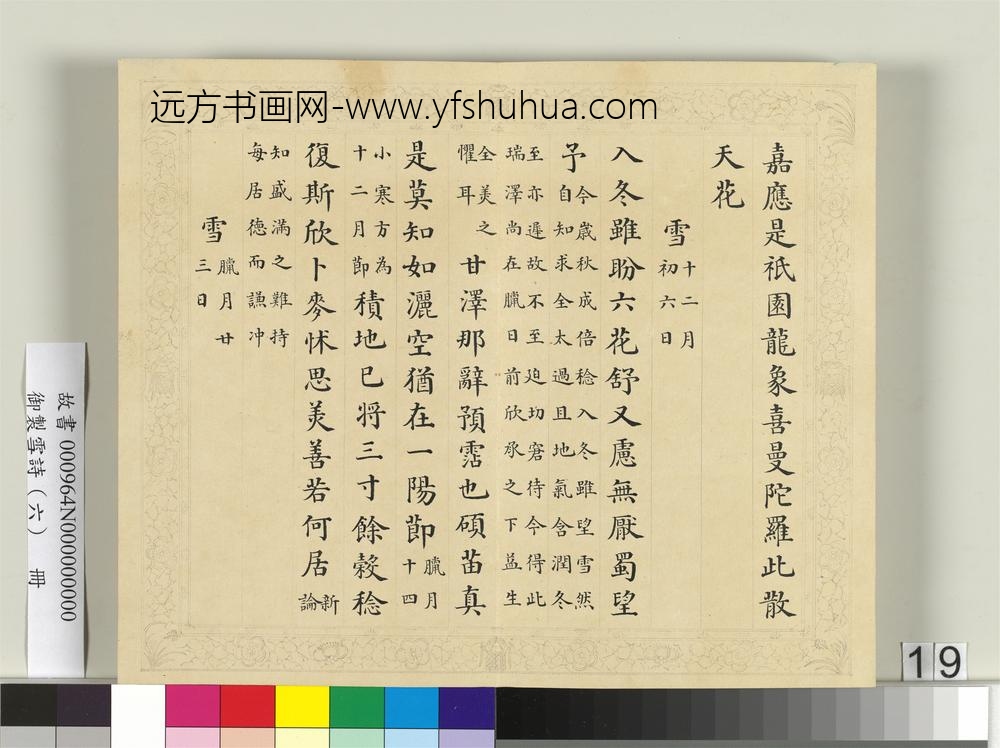 远方书画网-www.yfshuhua.com
嘉應是祇園龍象喜曼陀羅此散
天花
雪十二月初六日
入冬雖盼六花舒又慮無厭蜀望
予今歲秋成倍稔入冬雖望雪然自知求全太過且地氣含潤冬
至亦遲故不至迫切窘待今得此瑞澤尚在臘日前欣承之下益生
全美之懼耳甘澤那辭預霑也碩苗真
是莫知如灑空猶在一陽節臘月十四
小寒方為十二月節積地已將三寸餘穀稔
復斯欣卜麥怵思美善若何居新論
知盛滿之難持每居德而謙冲
雪臘月廿三日
故書 000964N000000000
御製雪詩（六） 冊
19